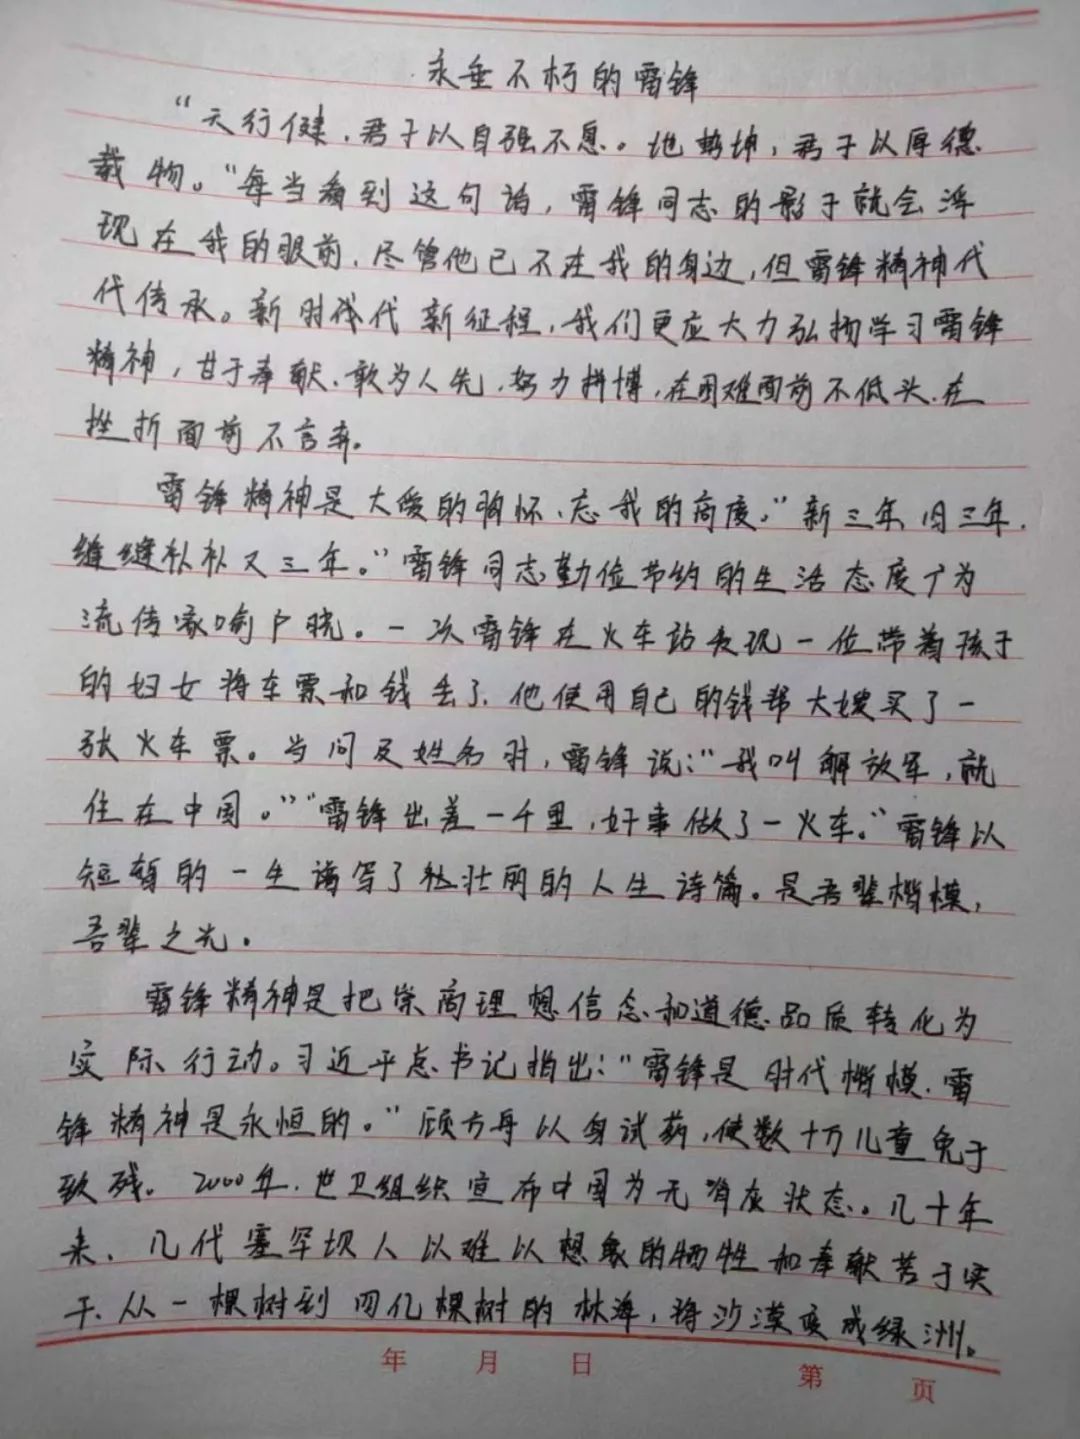 永垂不朽的雷锋
“天行健，君子以自强不息。地势坤，君子以厚德
载物。”每当看到这句话，雷锋同志的影子就会浮
现在我的眼前，尽管他已不在我的身边，但雷锋精神代
代传承。新时代新征程，我们更应大力弘扬学习雷锋
精神，甘于奉献、敢为人先，努力拼搏，在困难面前不低头、在
挫折面前不言弃。
雷锋精神是大爱的胸怀、忘我的高度。“新三年，旧三年，
缝缝补补又三年。”雷锋同志勤俭节约的生活态度广为
流传家喻户晓。一次雷锋在火车站发现一位带着孩子
的妇女将车票和钱丢了，他使用自己的钱帮大嫂买了一
张火车票。当问及姓名时，雷锋说：“我叫解放军，就
住在中国。”“雷锋出差一千里，好事做了一火车。”雷锋以
短暂的一生谱写了壮丽的人生诗篇。是吾辈楷模，
吾辈之光。
雷锋精神是把崇高理想信念和道德品质转化为
实际行动。习近平总书记指出：“雷锋是时代楷模，雷
锋精神是永恒的。”顾方舟以身试药，使数十万儿童免于
致残。2000年，世卫组织宣布中国为无脊灰状态。几十年
来，几代塞罕坝人以难以想象的牺牲和奉献苦于实
干，从一棵树到四亿棵树的林海，将沙漠变成绿洲。
年 月 日 第 页